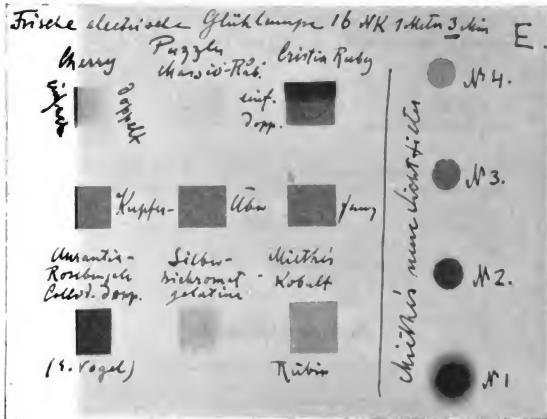 Frische electrische Glühlampe 16 NK 1 Meter 3 Min
E.
Cherry
einf.
Doppelt
Puzzles
Cristia Ruby
einf.
Dopp.
Kupfer-
Über
fang
Aurantia-
Rosebengale
Collod. Dopp.
(E. Vogel)
Silber-
bichromat
gelatine
Miethes
Kobalt
Rubin
Miethes neue Lichtfilter
№ 4.
№ 3.
№ 2.
№ 1